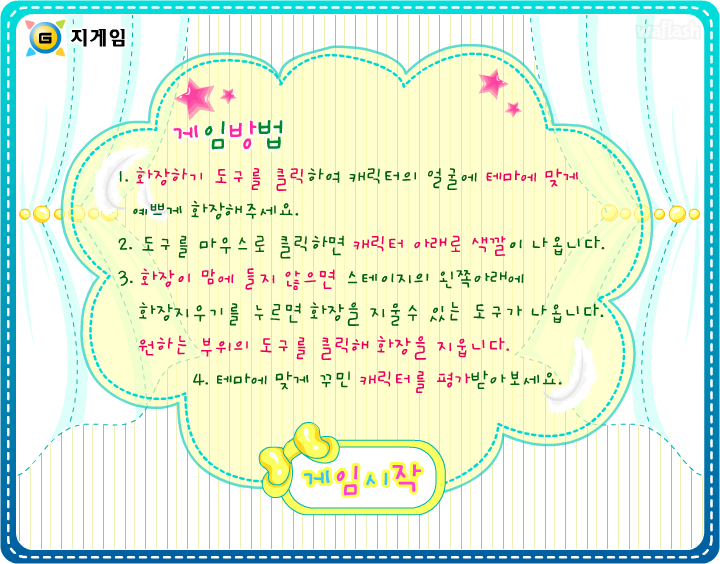 G 지게임
waflash
게임방법
1. 화장하기 도구를 클릭하여 캐릭터의 얼굴에 테마에 맞게
예쁘게 화장해주세요.
2. 도구를 마우스로 클릭하면 캐릭터 아래로 색깔이 나옵니다.
3. 화장이 맘에 들지 않으면 스테이지의 왼쪽아래에
화장지우기를 누르면 화장을 지울수 있는 도구가 나옵니다.
원하는 부위의 도구를 클릭해 화장을 지웁니다.
4. 테마에 맞게 꾸민 캐릭터를 평가받아보세요.
게임시작